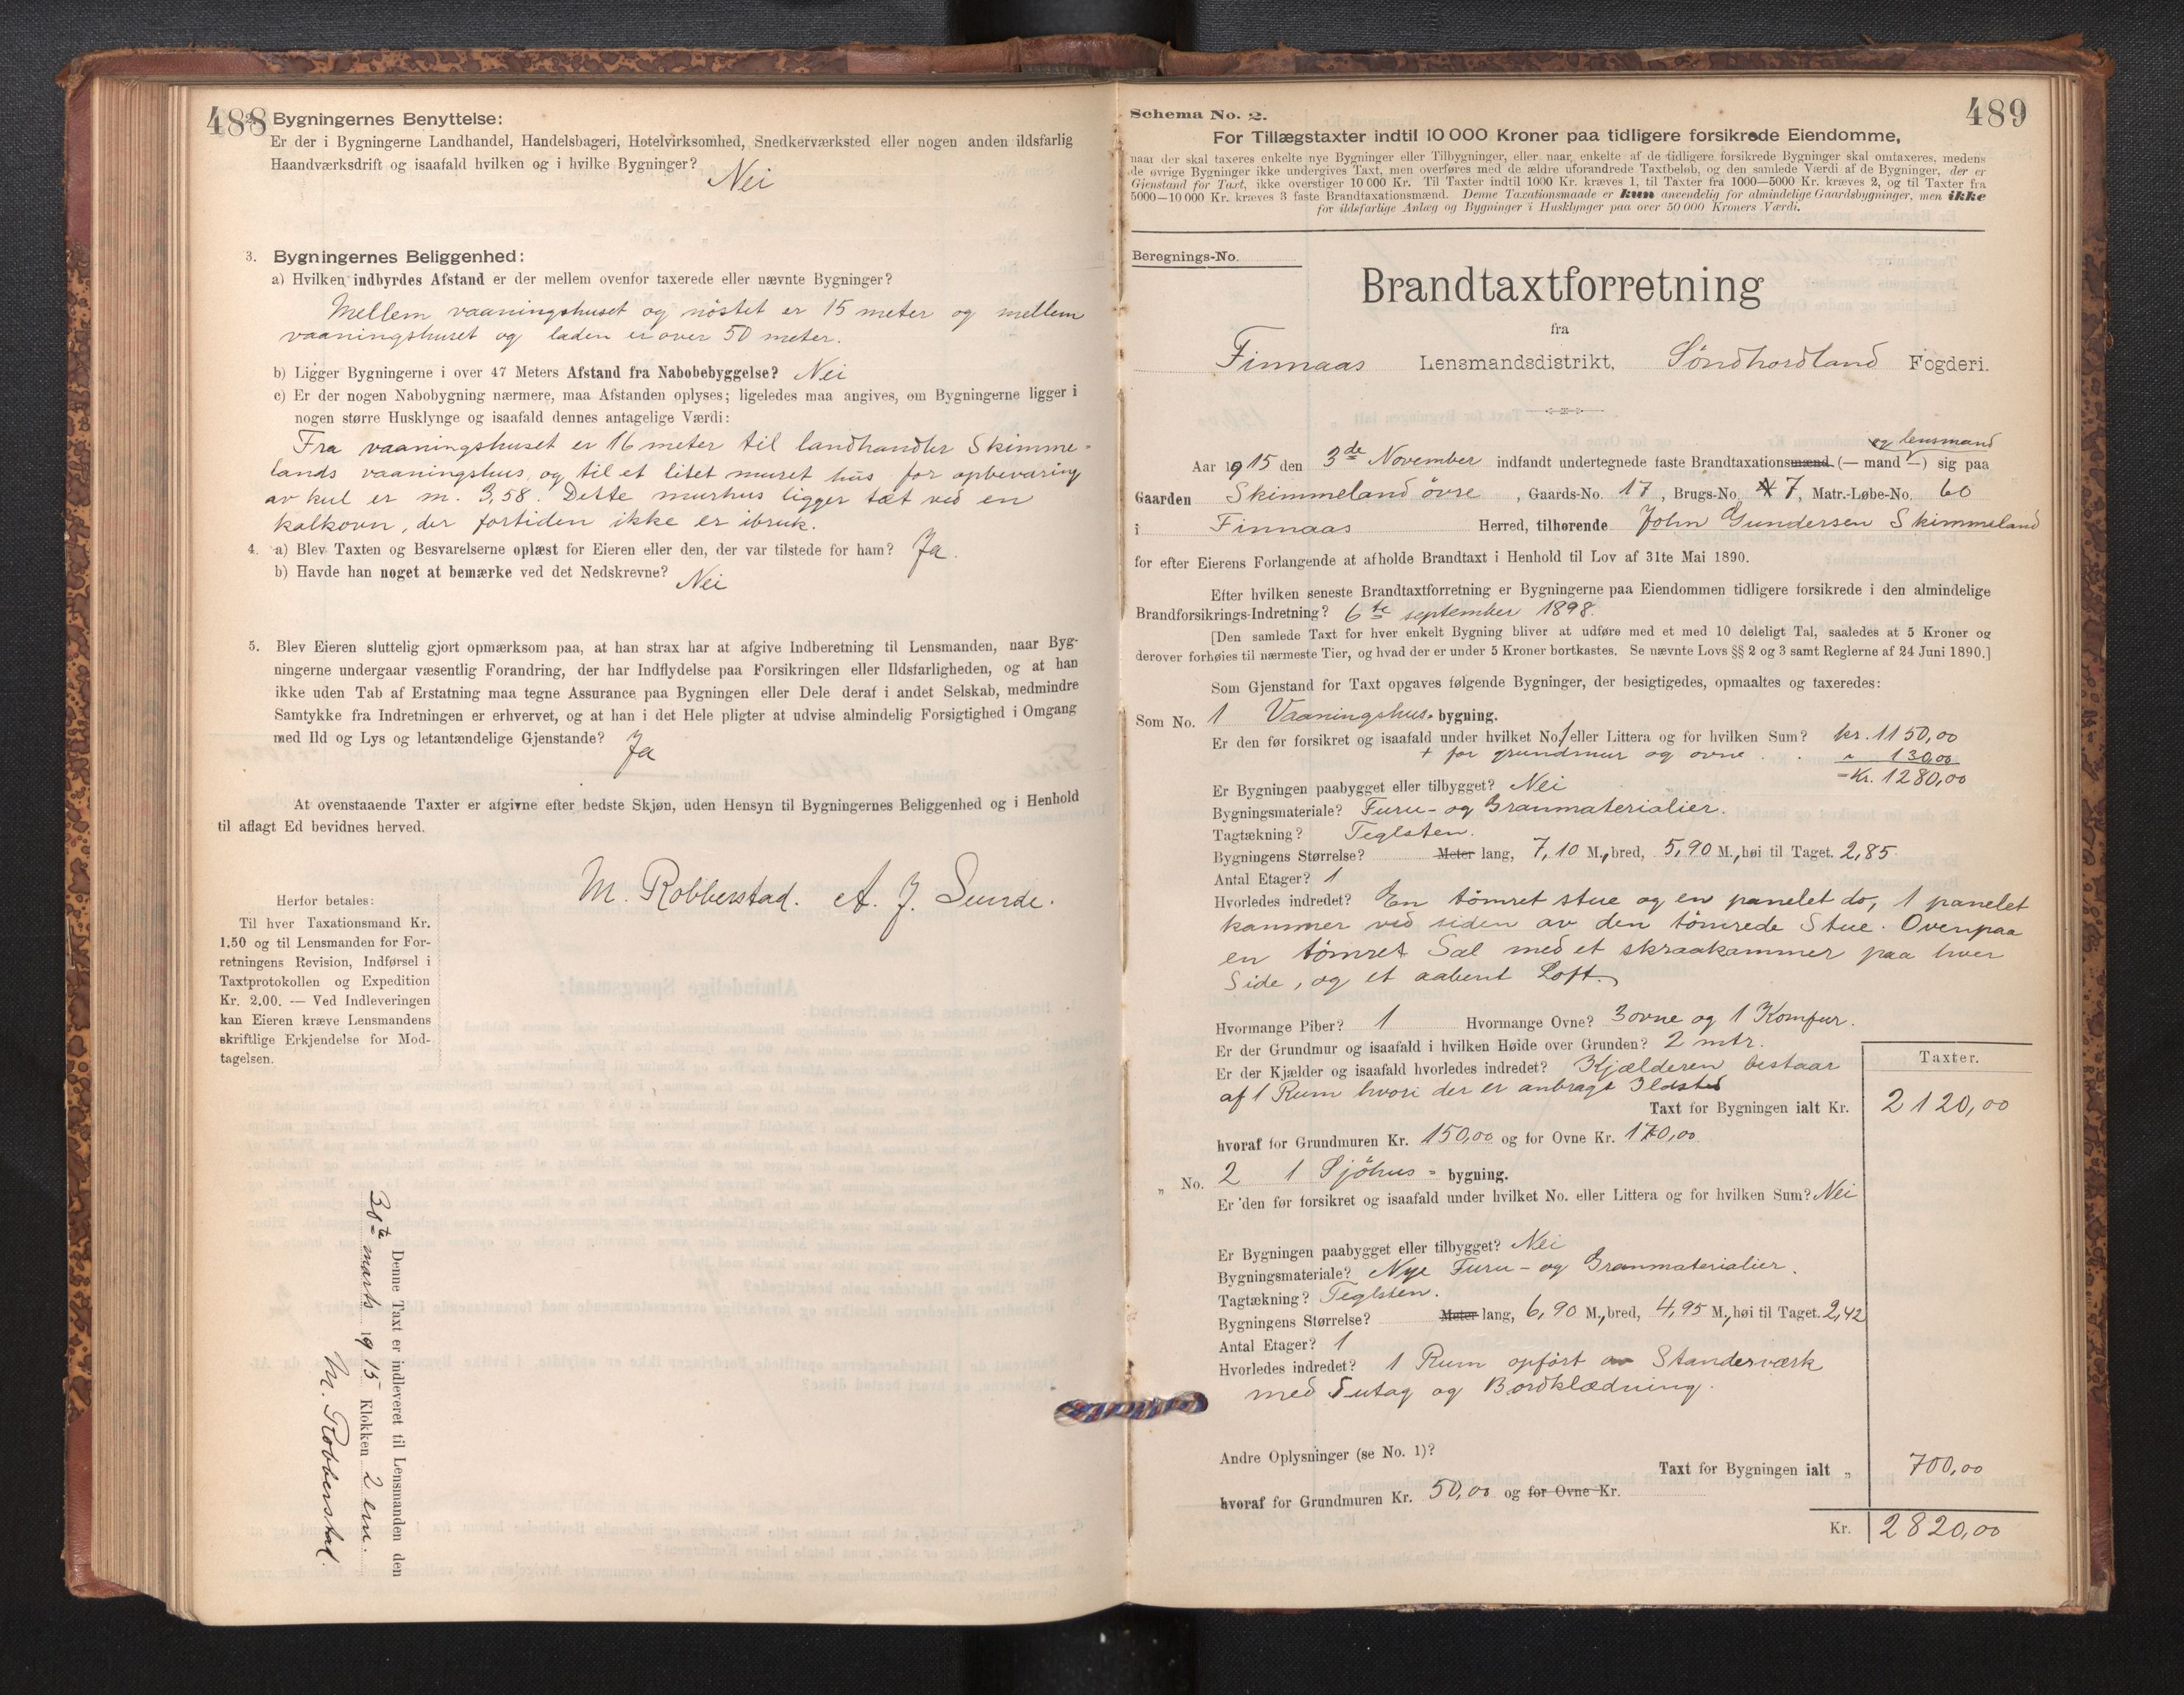 488
2. Bygningernes Benyttelse:
Er der i Bygningerne Landhandel, Handelsbageri, Hotelvirksomhed, Snedkerværksted eller nogen anden ildsfarlig
Haandværksdrift og isaafald hvilken og i hvilke Bygninger? Nei
3. Bygningernes Beliggenhed:
a) Hvilken indbyrdes Afstand er der mellem ovenfor taxerede eller nævnte Bygninger?
Mellem vaaningshuset og nöstet er 15 meter og mellem
vaaningshuset og laden er over 50 meter.
b) Ligger Bygningerne i over 47 Meters Afstand fra Nabobebyggelse? Nei
c) Er der nogen Nabobygning nærmere, maa Afstanden oplyses; ligeledes maa angives, om Bygningerne ligger i
nogen større Husklynge og isaafald dennes antagelige Værdi:
Fra vaaningshuset er 16 meter til landhandler Skimme-
lands vaaningshus, og til et litet muret hus for opbevaring
av kul er m. 3,58. Dette murhus ligger tæt ved en
kalkovn, der fortiden ikke er ibruk.
4. a) Blev Taxten og Besvarelserne oplæst for Eieren eller den, der var tilstede for ham? Ja.
b) Havde han noget at bemærke ved det Nedskrevne? Nei
5. Blev Eieren sluttelig gjort opmærksom paa, at han strax har at afgive Indberetning til Lensmanden, naar Byg-
ningerne undergaar væsentlig Forandring, der har Indflydelse paa Forsikringen eller Ildsfarligheden, og at han
ikke uden Tab af Erstatning maa tegne Assurance paa Bygningen eller Dele deraf i andet Selskab, medmindre
Samtykke fra Indretningen er erhvervet, og at han i det Hele pligter at udvise almindelig Forsigtighed i Omgang
med Ild og Lys og letantændelige Gjenstande? Ja
At ovenstaaende Taxter er afgivne efter bedste Skjøn, uden Hensyn til Bygningernes Beliggenhed og i Henhold
til aflagt Ed bevidnes herved.
M. Robberstad. A. J. Sunde.
Herfor betales:
Til hver Taxationsmand Kr.
1.50 og til Lensmanden for For-
retningens Revision, Indførsel i
Taxtprotokollen og Expedition
Kr. 2.00. — Ved Indleveringen
kan Eieren kræve Lensmandens
skriftlige Erkjendelse for Mod-
tagelsen.
Denne Taxt er indleveret til Lensmanden den
31te marts 1915 Klokken 2 em.
M. Robberstad.
489
Schema No. 2.
For Tillægstaxter indtil 10 000 Kroner paa tidligere forsikrede Eiendomme,
naar der skal taxeres enkelte nye Bygninger eller Tilbygninger, eller naar enkelte af de tidligere forsikrede Bygninger skal omtaxeres, medens
de øvrige Bygninger ikke undergives Taxt, men overføres med de ældre uforandrede Taxtbeløb, og den samlede Værdi af de Bygninger, der er
Gjenstand for Taxt, ikke overstiger 10 000 Kr. Til Taxter indtil 1000 Kr. kræves 1, til Taxter fra 1000—5000 Kr. kræves 2, og til Taxter fra
5000—10 000 Kr. kræves 3 faste Brandtaxationsmænd. Denne Taxationsmaade er kun anvendelig for almindelige Gaardsbygninger, men ikke
for ildsfarlige Anlæg og Bygninger i Husklynger paa over 50 000 Kroners Værdi.
Beregnings-No.
Brandtaxtforretning
fra
Finnaas Lensmandsdistrikt, Söndhordland Fogderi.
og lensmand
Aar 1915 den 3de November indfandt undertegnede faste Brandtaxationsmænd (— mand —) sig paa
Gaarden Skimmeland övre, Gaards-No. 17, Brugs-No. 7, Matr.-Løbe-No. 60
i Finnaas Herred, tilhørende John Gundersen Skimmeland
for efter Eierens Forlangende at afholde Brandtaxt i Henhold til Lov af 31te Mai 1890.
Efter hvilken seneste Brandtaxtforretning er Bygningerne paa Eiendommen tidligere forsikrede i den almindelige
Brandforsikrings-Indretning? 6te september 1898.
[Den samlede Taxt for hver enkelt Bygning bliver at udføre med et med 10 deleligt Tal, saaledes at 5 Kroner og
derover forhøies til nærmeste Tier, og hvad der er under 5 Kroner bortkastes. Se nævnte Lovs §§ 2 og 3 samt Reglerne af 24 Juni 1890.]
Som Gjenstand for Taxt opgaves følgende Bygninger, der besigtigedes, opmaaltes og taxeredes:
Som No. 1 Vaaningshus-bygning.
Er den før forsikret og isaafald under hvilket No. 1 eller Littera og for hvilken Sum? kr. 1150,00
+ for grundmur og ovne . . " 130,00
Er Bygningen paabygget eller tilbygget? Nei = Kr. 1280,00
Bygningsmateriale? Furu- og Granmaterialier.
Tagtækning? Teglsten.
Bygningens Størrelse? Meter lang, 7,10 M., bred, 5,90 M., høi til Taget. 2,85.
Antal Etager? 1
Hvorledes indredet? En tömret stue og en panelet do, 1 panelet
kammer ved siden av den tömrede Stue. Ovenpaa
en tömret Sal med et skraakammer paa hver
Side, og et aabent Loft.
Hvormange Piber? 1 Hvormange Ovne? 3 ovne og 1 Komfur.
Er der Grundmur og isaafald i hvilken Høide over Grunden? 2 mtr.
Er der Kjælder og isaafald hvorledes indredet? Kjælderen bestaar
af 1 Rum hvori der er anbragt Ildsted
Taxter.
Taxt for Bygningen ialt Kr. 2120,00
hvoraf for Grundmuren Kr. 150,00 og for Ovne Kr. 170,00
" No. 2 1 Sjöhus-bygning.
Er den før forsikret og isaafald under hvilket No. eller Littera og for hvilken Sum? Nei
Er Bygningen paabygget eller tilbygget? Nei
Bygningsmateriale? Nye Furu- og Granmaterialier.
Tagtækning? Teglsten.
Bygningens Størrelse? Meter lang, 6,90 M., bred, 4,95 M., høi til Taget. 2,42
Antal Etager? 1
Hvorledes indredet? 1 Rum opfört av Standerværk
med Sutag og Bordklædning.
Andre Oplysninger (se No. 1)?
Taxt for Bygningen ialt " 700,00
hvoraf for Grundmuren Kr. 50,00 og for Ovne Kr.
Kr. 2820,00